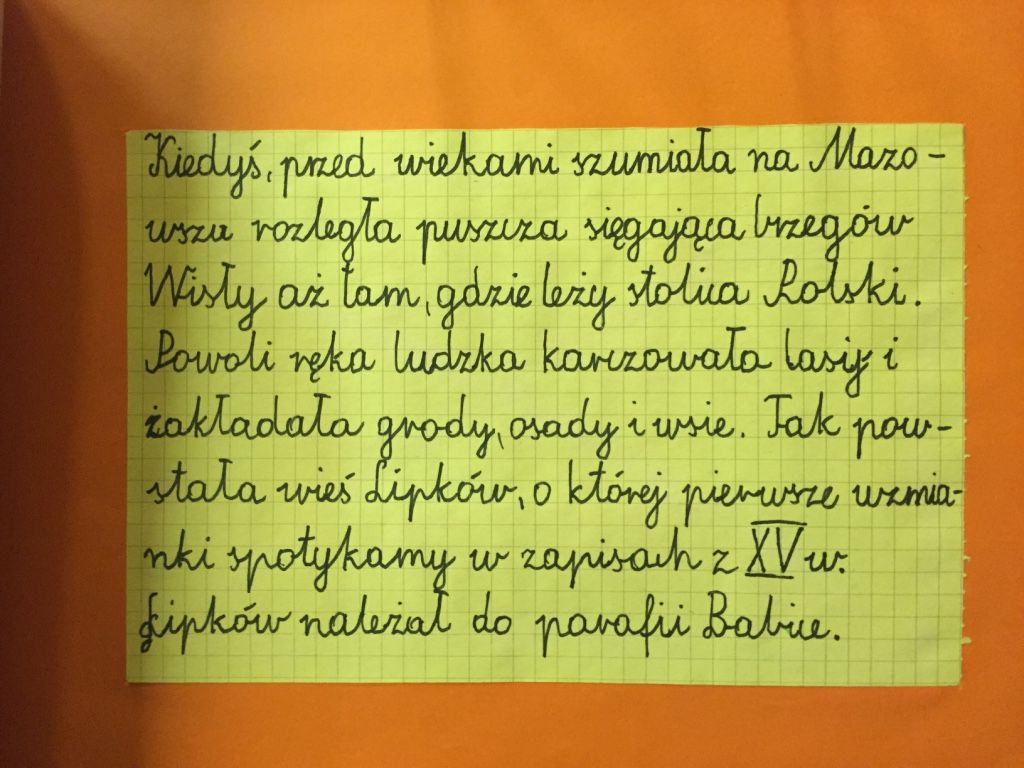 Kiedyś, przed wiekami szumiała na Mazo-
wszu rozległa puszcza sięgająca brzegów
Wisły aż tam, gdzie leży stolica Polski.
Powoli ręka ludzka karczowała lasy i
zakładała grody, osady i wsie. Tak pow-
stała wieś Lipków, o której pierwsze wzmia-
nki spotykamy w zapisach z XV w.
Lipków należał do parafii Babice.